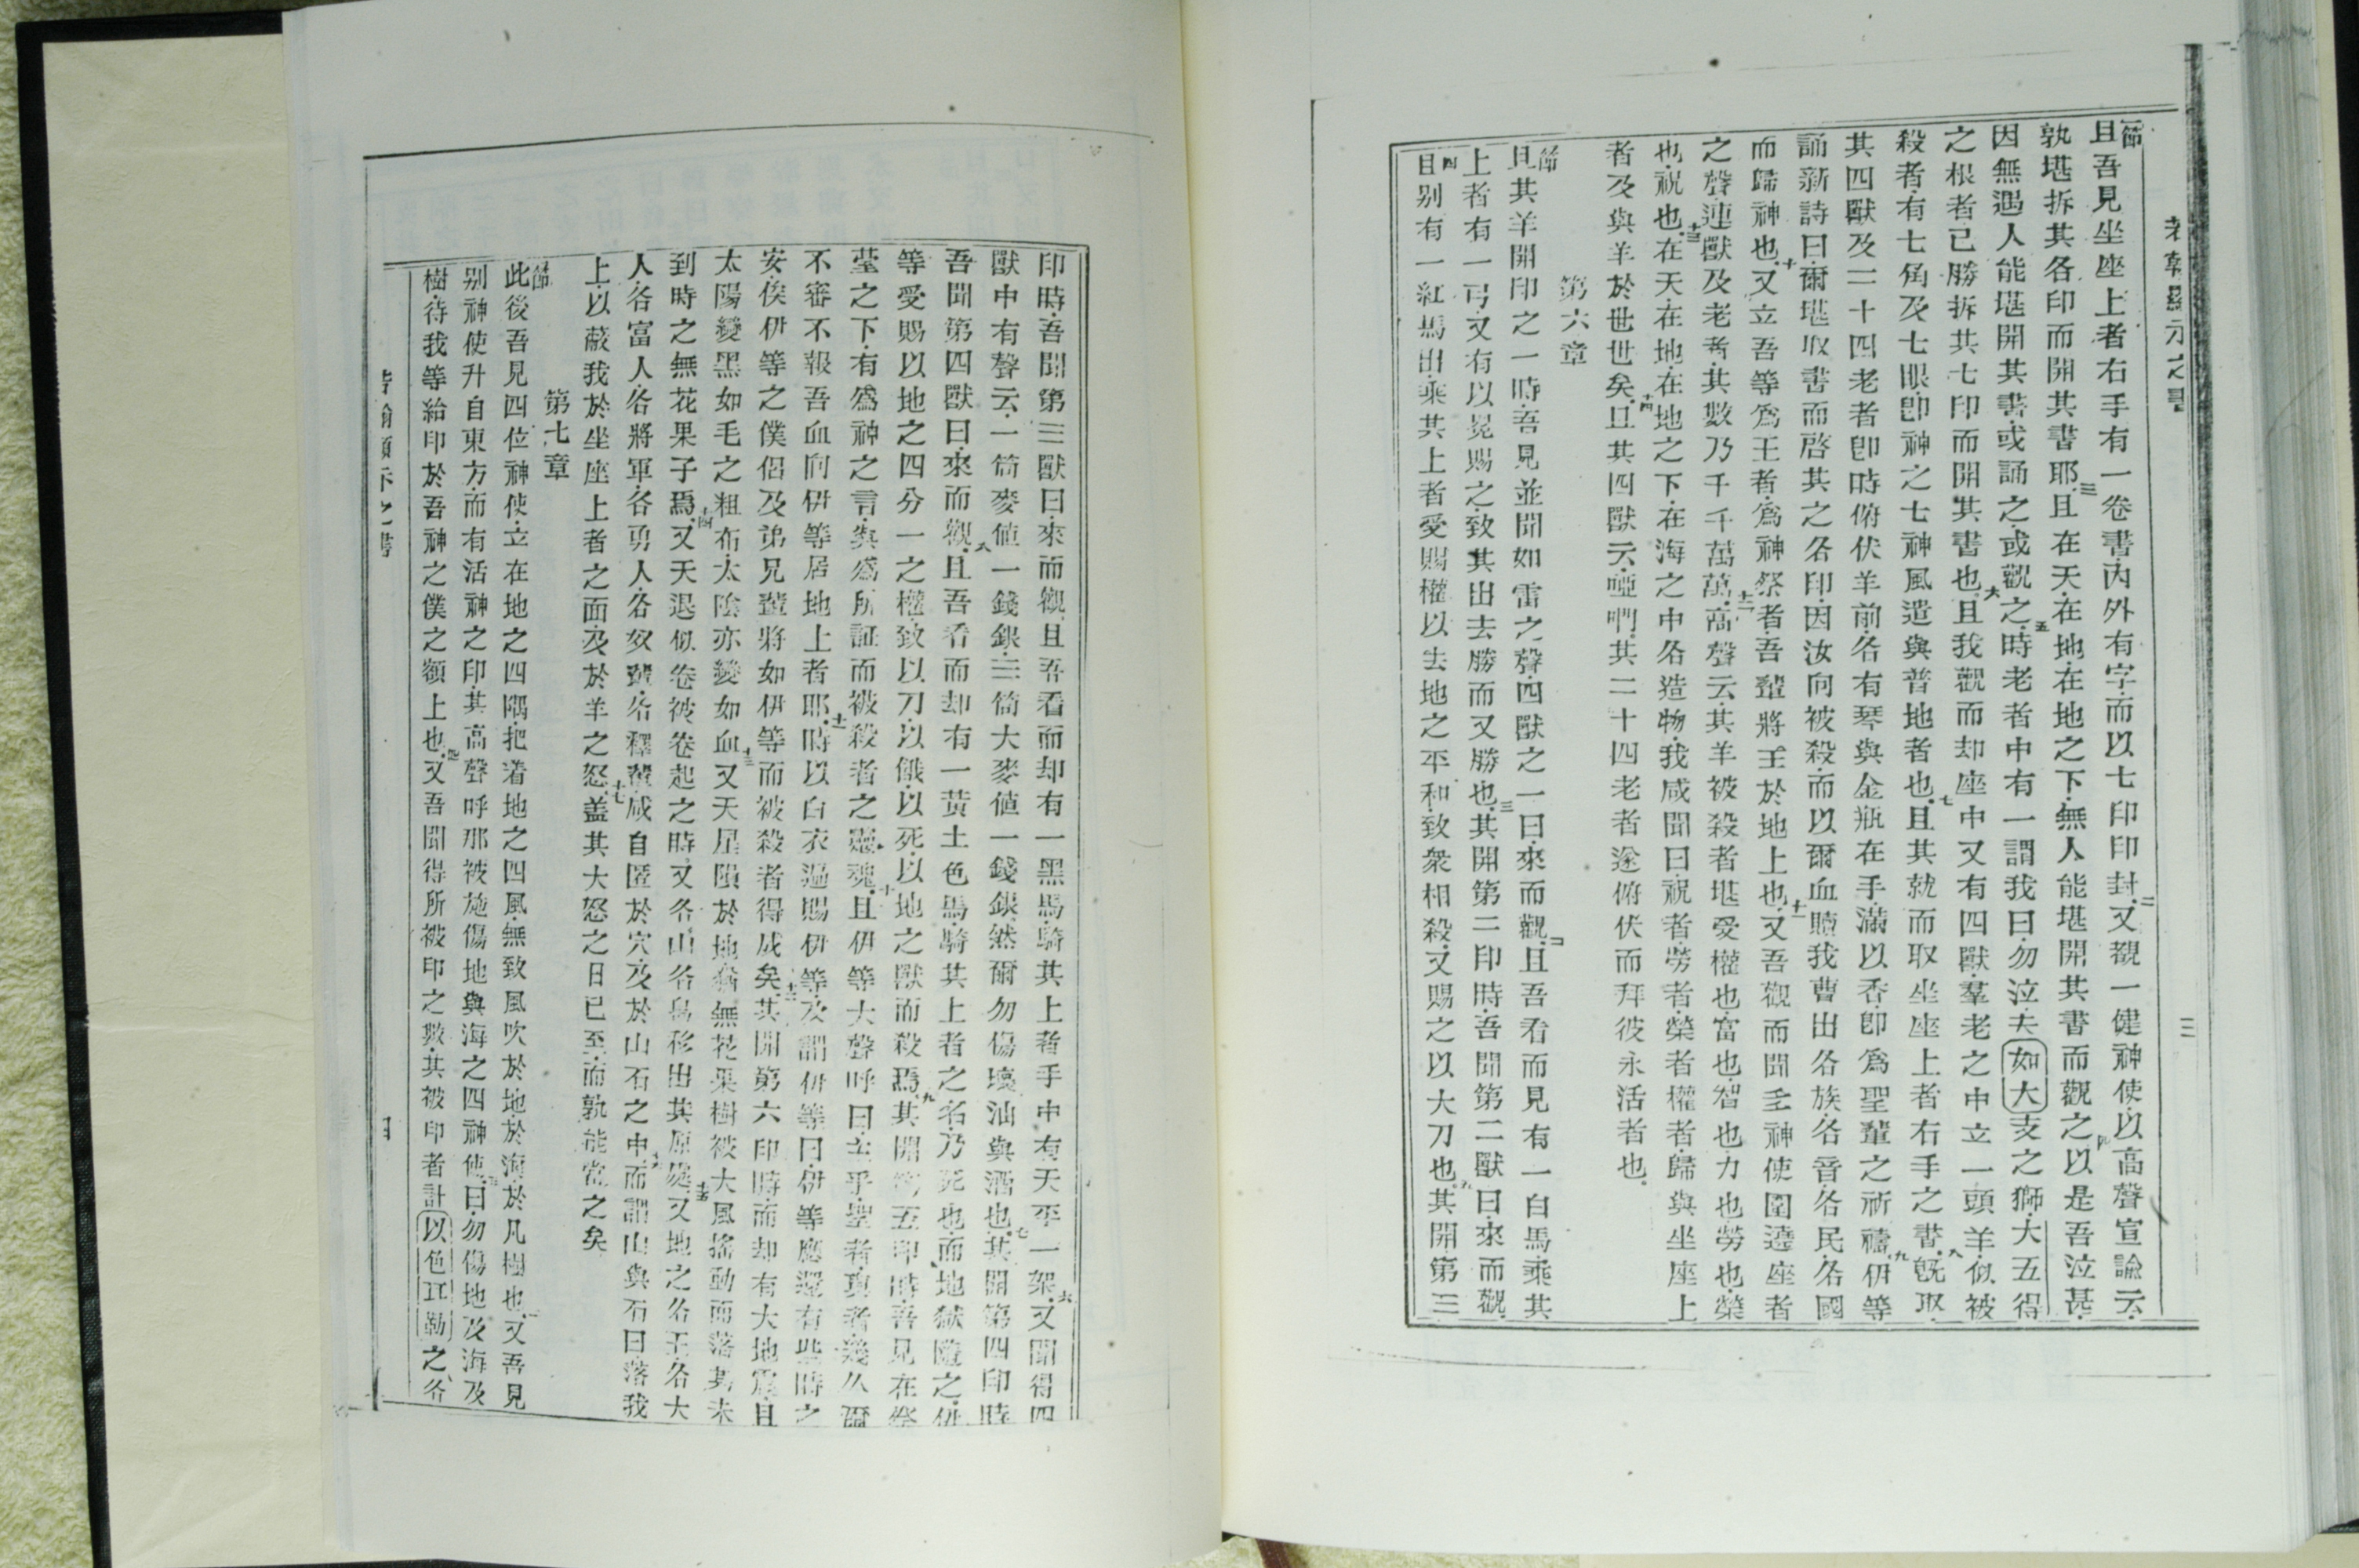 若翰顯示之書
三
節
且吾見坐座上者右手有一卷書內外有字而以七印印封二又觀一健神使以高聲宣諭云
孰堪拆其各印而開其書耶三且在天在地在地之下無人能堪開其書而觀之四以是吾泣甚
因無遇人能堪開其書或誦之或觀之五時老者中有一謂我曰勿泣夫如大支之獅大五得
之根者已勝拆其七印而開其書也六且我觀而却座中又有四獸羣老之中立一頭羊似被
殺者有七角及七眼卽神之七神風遣與普地者也七且其就而取坐座上者右手之書八旣取
其四獸及二十四老者卽時俯伏羊前各有琴與金瓶在手滿以香卽為聖輩之祈禱九伊等
誦新詩曰爾堪取書而啓其之各印因汝向被殺而以爾血贖我曹出各族各音各民各國
而歸神也十又立吾等為王者為神祭者吾輩將王於地上也十一又吾觀而聞多神使圍遶座者
之聲連獸及老者其數乃千千萬萬十二高聲云其羊被殺者堪受權也富也智也力也勞也榮
也祝也十三在天在地在地之下在海之中各造物我咸聞曰祝者勞者榮者權者歸與坐座上
者及與羊於世世矣十四且其四獸云啞吶其二十四老者遂俯伏而拜彼永活者也
第六章
節
且其羊開印之一時吾見並聞如雷之聲四獸之一曰來而觀二且吾看而見有一白馬乘其
上者有一弓又有以冕賜之致其出去勝而又勝也三其開第二印時吾聞第二獸曰來而觀
四且別有一紅馬出乘其上者受賜權以去地之平和致衆相殺又賜之以大刀也五其開第三
印時吾聞第三獸曰來而觀且吾看而却有一黑馬騎其上者手中有天平一架六又聞得四
獸中有聲云一筩麥値一錢銀三筩大麥値一錢銀然爾勿傷壞油與酒也七其開第四印時
吾聞第四獸曰來而觀八且吾看而却有一黃土色馬騎其上者之名乃死也而地獄隨之伊
等受賜以地之四分一之權致以刀以餓以死以地之獸而殺焉九其開第五印時吾見在祭
臺之下有為神之言與為所証而被殺者之靈魂十且伊等大聲呼曰主乎聖者真者幾久爾
不審不報吾血向伊等居地上者耶十一時以白衣遍賜伊等及謂伊等曰伊等應還有些時之
安俟伊等之僕侶及弟兄輩將如伊等而被殺者得成矣十二其開第六印時而却有大地震且
太陽變黑如毛之粗布太陰亦變如血十三又天星隕於地猶無花果樹被大風搖動而落其未
到時之無花果子焉十四又天退似卷被卷起之時又各山各島移出其原處十五又地之各王各大
人各富人各將軍各勇人各奴輩各釋輩咸自匿於穴及於山石之中十六而謂山與石曰落我
上以蔽我於坐座上者之面及於羊之怒十七蓋其大怒之日已至而孰能當之矣
第七章
節
此後吾見四位神使立在地之四隅把着地之四風無致風吹於地於海於凡樹也二又吾見
別神使升自東方而有活神之印其高聲呼那被施傷地與海之四神使三曰勿傷地及海及
樹待我等給印於吾神之僕之額上也四又吾聞得所被印之數其被印者計以色耳勒之各
若翰顯示之書
四